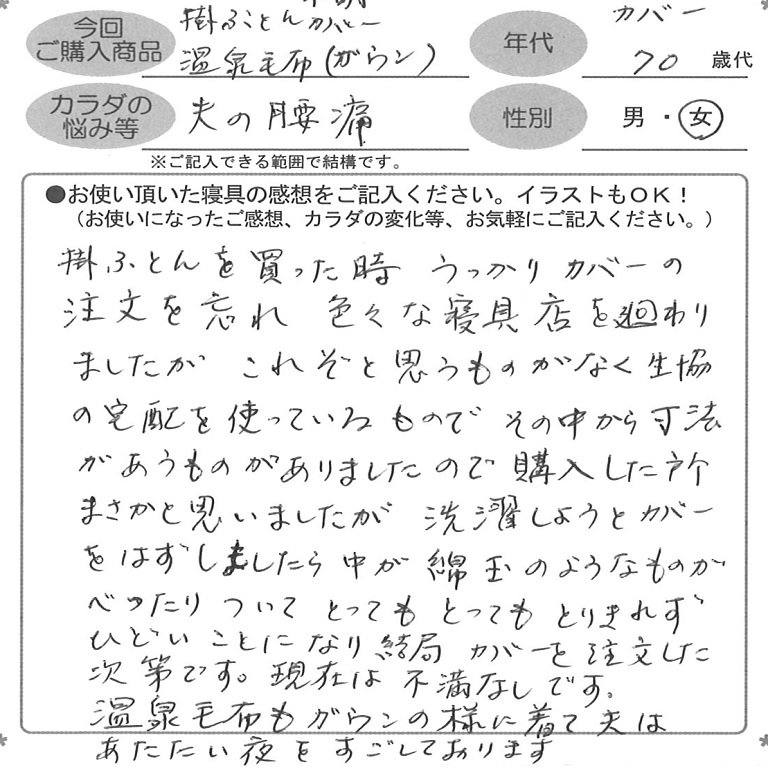 今回
ご購入商品
掛ふとんカバー
温泉毛布(ガウン)
年代
カバー
70 歳代
カラダの
悩み等
夫の腰痛
性別
男・女
※ご記入できる範囲で結構です。
●お使い頂いた寝具の感想をご記入ください。イラストもOK!
(お使いになったご感想、カラダの変化等、お気軽にご記入ください。)
掛ふとんを買った時 うっかりカバーの
注文を忘れ 色々な寝具店を廻わり
ましたが これぞと思うものがなく生協
の宅配を使っているもので その中から寸法
があうものがありましたので購入した所
まさかと思いましたが 洗濯しようとカバー
をはずしましたら中が 綿玉のようなものが
べったりついてとってもとってもとりきれず
ひどいことになり結局 カバーを注文した
次第です。現在は 不満なしです。
温泉毛布もガウンの様に着て夫は
あたたい夜をすごしております